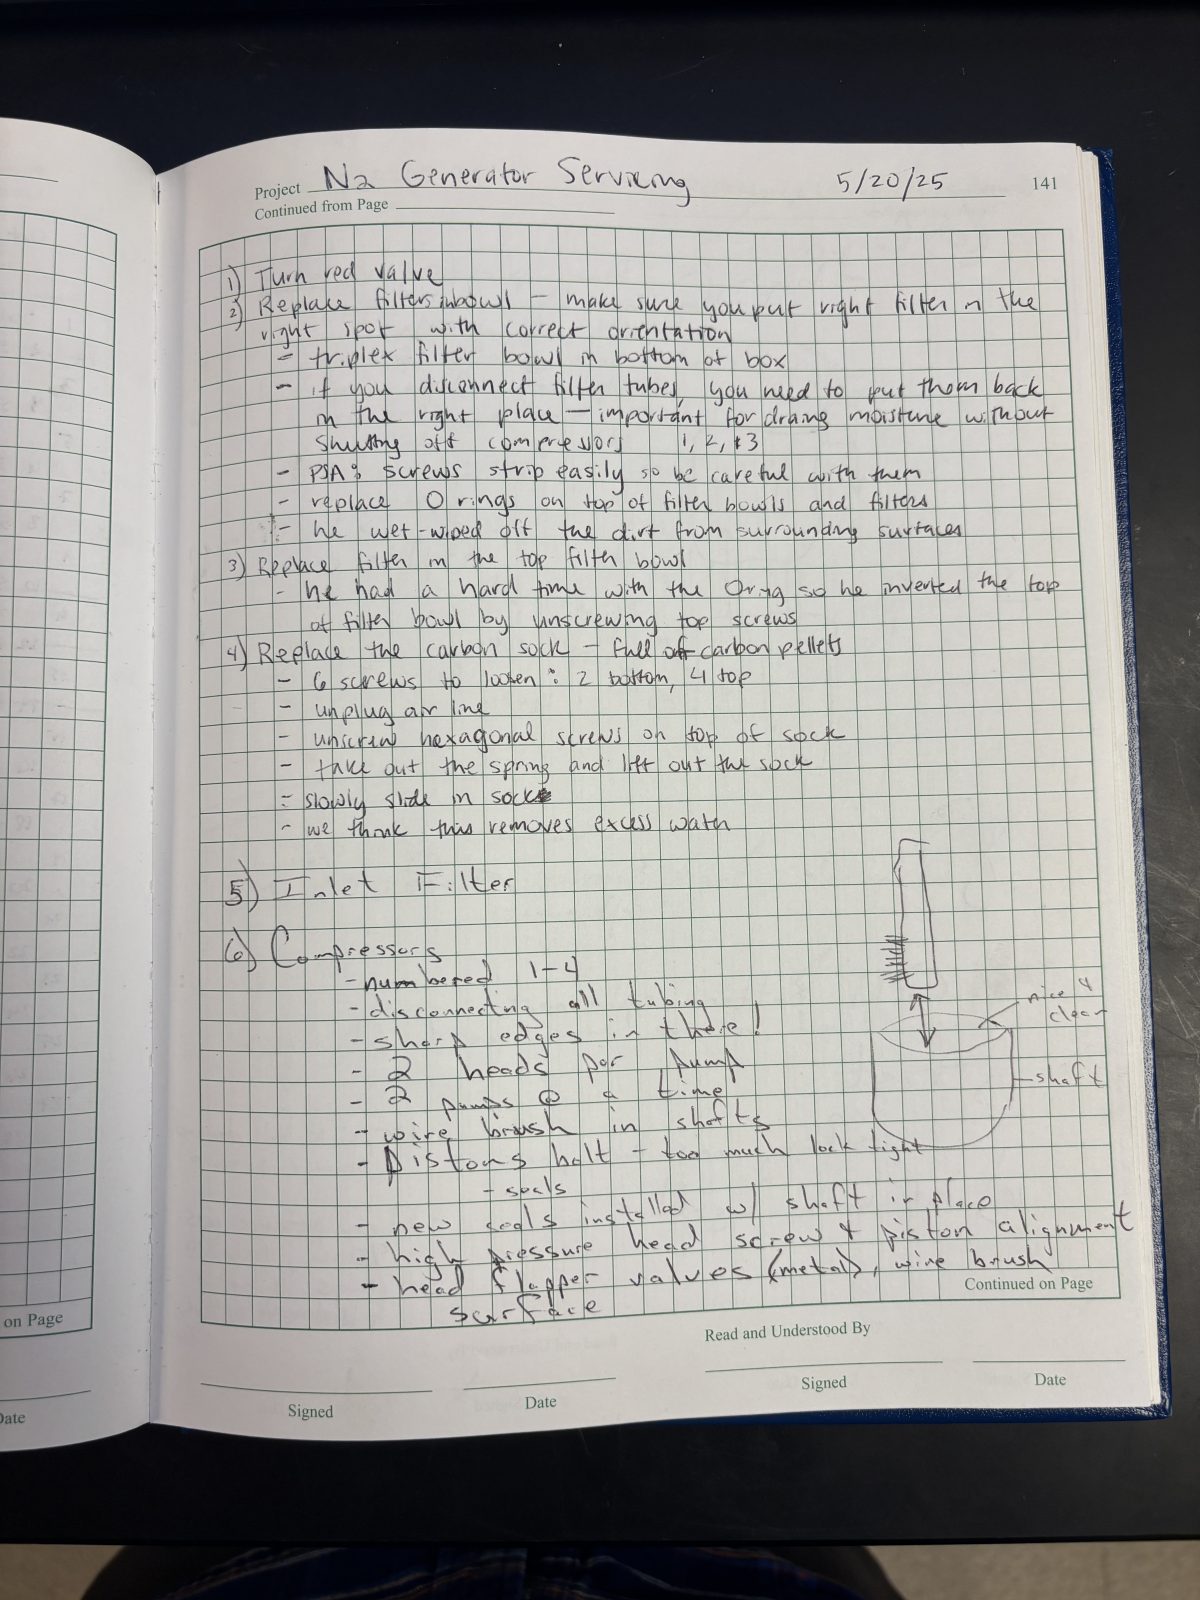 Project N2 Generator Servicing 5/20/25 141
Continued from Page
1) Turn red valve
2) Replace filters in bowl – make sure you put right filter in the
right spot with correct orientation
- triplex filter bowl in bottom of box
- if you disconnect filter tubes, you need to put them back
in the right place – important for draing moisture without
shutting off compressors 1, 2, & 3
- PSA: screws strip easily so be careful with them
- replace O rings on top of filter bowls and filters
- he wet-wiped off the dirt from surrounding surfaces
3) Replace filter in the top filter bowl
- he had a hard time with the O ring so he inverted the top
of filter bowl by unscrewing top screws
4) Replace the carbon sock – full of carbon pellets
- 6 screws to loosen: 2 bottom, 4 top
- unplug air line
- unscrew hexagonal screws on top of sock
- take out the spring and lift out the sock
- slowly slide in sock
- we think this removes excess water
5) Inlet Filter
6) Compressors
- numbered 1-4
- disconnecting all tubing
- sharp edges in there!
nice &
clean
- 2 heads per pump
shaft
- 2 pumps @ a time
- wire brush in shafts
- Pistons bolt – too much lock tight
- seals
- new seals installed w/ shaft in place
- high pressure head screw & piston alignment
- head flapper valves (metal), wire brush
surface
Continued on Page
on Page
Read and Understood By
Signed
Date
Signed
Date
Date